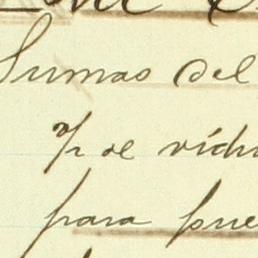 Sumas del
"/r de vidr
para pue